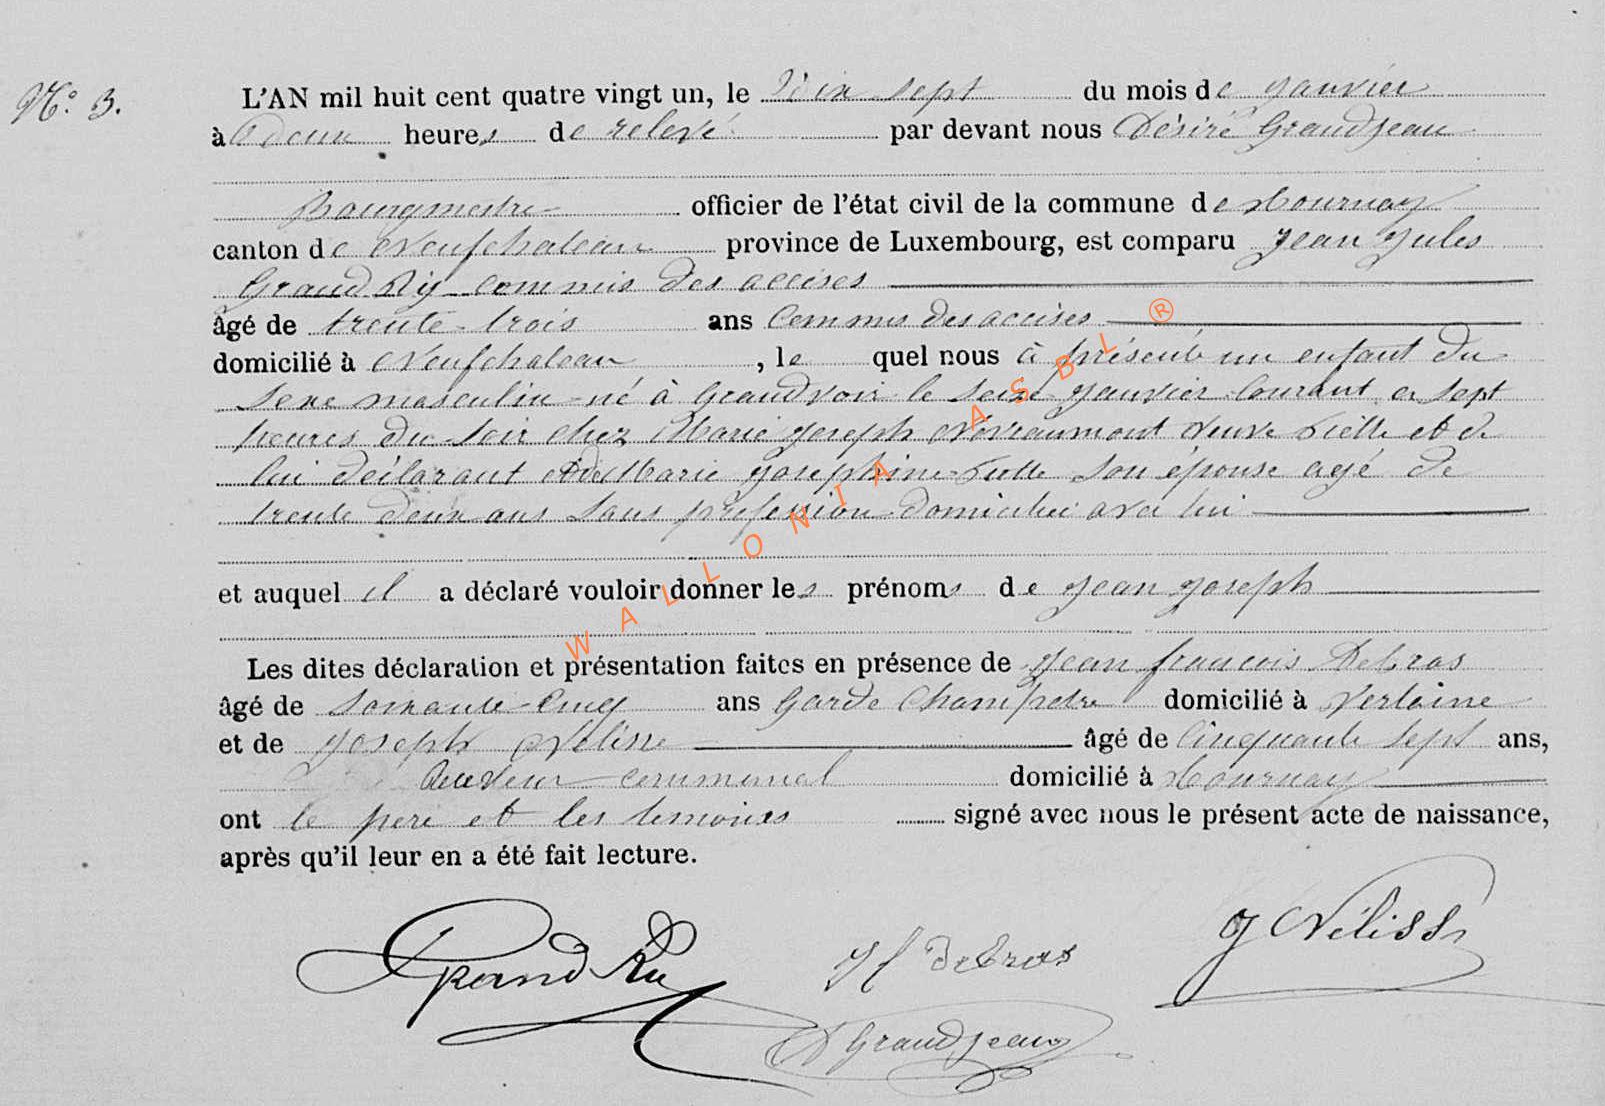 N° 3.
L'AN mil huit cent quatre vingt un, le Dix sept du mois de Janvier
à Deux heures de relevé par devant nous Désiré Grandjean
Bourgmestre officier de l'état civil de la commune de Tournay
canton de Neufchateau province de Luxembourg, est comparu Jean Jules
Grand Ry commis des accises
âgé de trente-trois ans Commis des accises
domicilié à Neufchateau, le quel nous à présenté un enfant du
sexe masculin né à Grandvoir le seize Janvier Courant a sept
heures du soir chez Marie Joseph Névraumont veuve et de
lui déclarant et de Marie Josephine son épouse agé de
trente deux ans sans profession domiciliée avec lui
et auquel il a déclaré vouloir donner les prénoms de Jean Joseph
Les dites déclaration et présentation faites en présence de Jean francois Debras
âgé de soixante-cinq ans Garde Champetre domicilié à Verlaine
et de Joseph Nelisse âgé de Cinquante sept ans,
Receveur communal domicilié à Tournay
ont le père et les temoins signé avec nous le présent acte de naissance,
après qu'il leur en a été fait lecture.
Grand Ry
Jf Debras
J Néliss
D Grandjean
WALLONIA ASBL ®